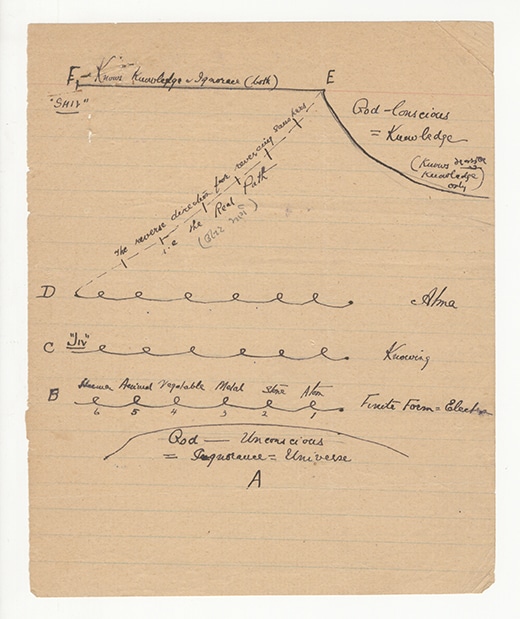 F - Knows Knowledge & Ignorance (both)
E
"SHIV"
God-Conscious
= Knowledge
(Knows
Knowledge
only)
The reverse direction for reversing sanskars
i.e the Real Path
D
Atma
"JIV"
C
Knowing
Human Animal Vegetable Metal Stone Atom
B
Finite Form = Electron
6 5 4 3 2 1
God — Unconscious
= Ignorance = Universe
A